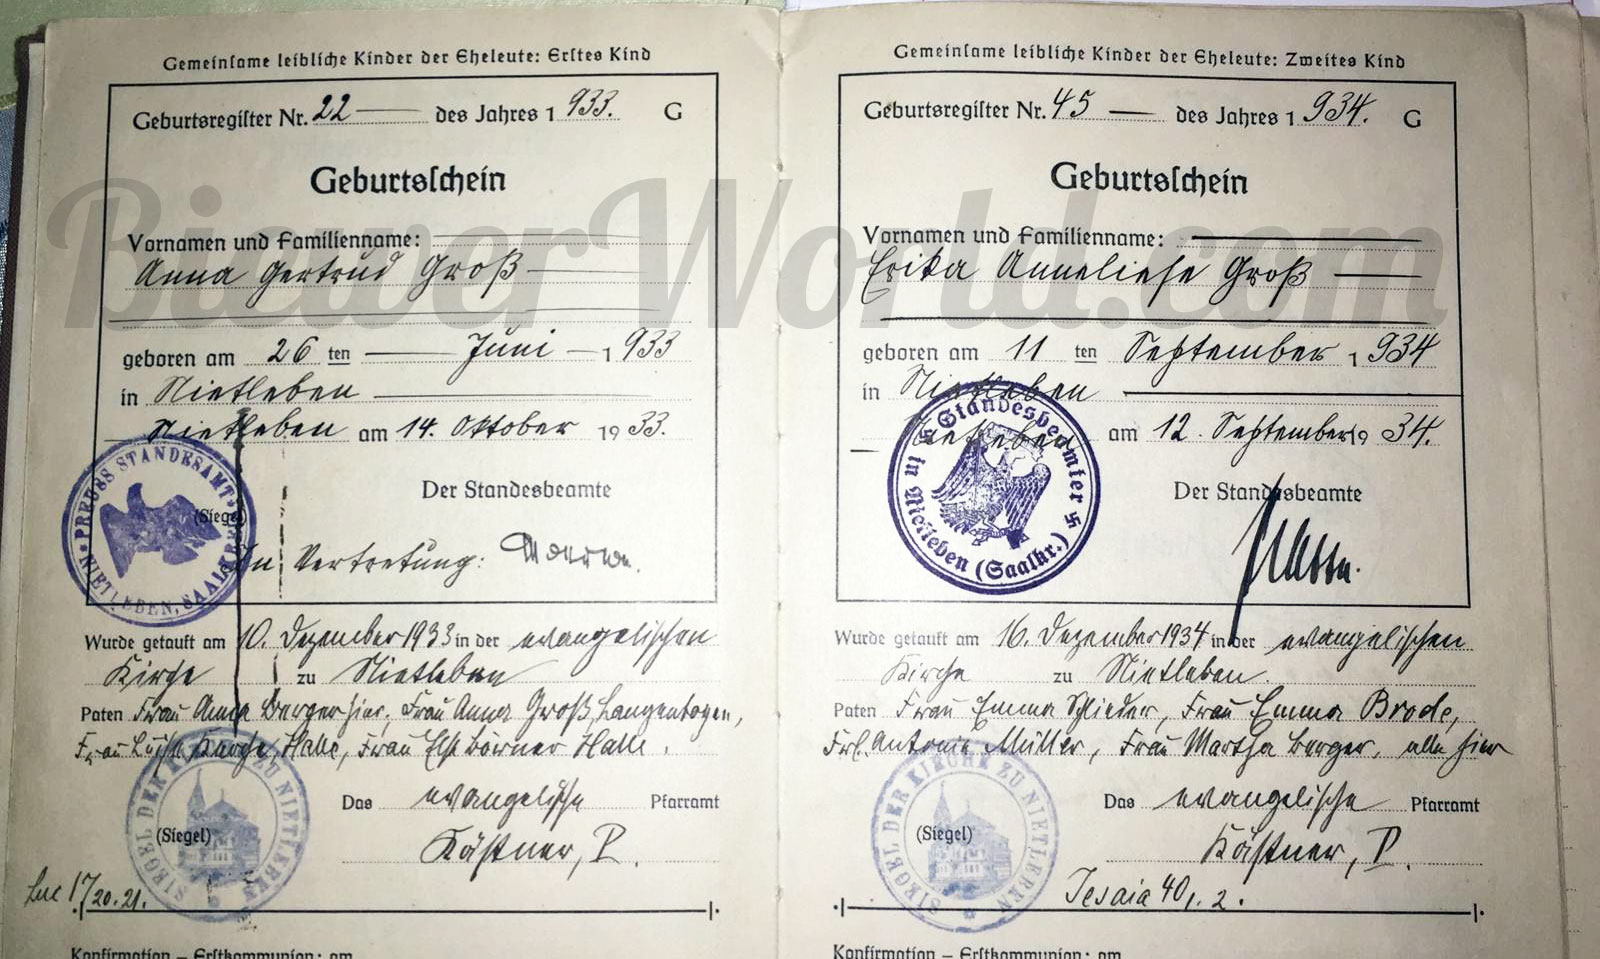 Gemeinsame leibliche Kinder der Eheleute: Erstes Kind
Geburtsregister Nr. 22 des Jahres 1933. G
Geburtsschein
Vornamen und Familienname:
Anna Gertrud Groß
geboren am 26 ten Juni 1933
in Nietleben
Nietleben am 14. Oktober 1933.
Der Standesbeamte
(Siegel)
PREUSS STANDESAMT NIETLEBEN, SAALKREIS
In Vertretung:
Wurde getauft am 10. Dezember 1933 in der evangelischen
Kirche zu Nietleben
Paten Frau Anna Berger hier, Frau Anna Groß, Langenbogen,
Frau Halle, Frau Else Börner Halle.
Das evangelische Pfarramt
(Siegel) Kästner, P.
SIEGEL DER KIRCHE ZU NIETLEBEN
Luc 17/20.21.
Konfirmation – Erstkommunion: am
Gemeinsame leibliche Kinder der Eheleute: Zweites Kind
Geburtsregister Nr. 45 des Jahres 1934. G
Geburtsschein
Vornamen und Familienname:
Erika Anneliese Groß
geboren am 11 ten September 1934
in Nietleben
Nietleben am 12. September 1934.
Der Standesbeamte
Standesbeamter in Nietleben (Saalkr.)
Wurde getauft am 16. Dezember 1934 in der evangelischen
Kirche zu Nietleben.
Paten Frau Emma Schlieder, Frau Emma Brode,
Frl. Antonie Müller, Frau Martha Berger, alle hier
Das evangelische Pfarramt
(Siegel) Kästner, P.
SIEGEL DER KIRCHE ZU NIETLEBEN
Jesaia 40, 1. 2.
Konfirmation – Erstkommunion: am
BiewerWorld.com